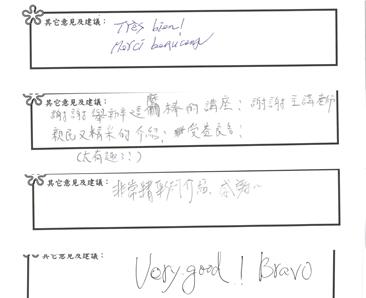 其它意見及建議：
Très bien!
Merci beaucoup
其它意見及建議：
謝謝 舉辦這麼棒的講座；謝謝主講老師
親民又精采的介紹；受益良多；
(太有趣了！)
其它意見及建議：
非常精彩的介紹、感謝
其它意見及建議：
Very good! Bravo